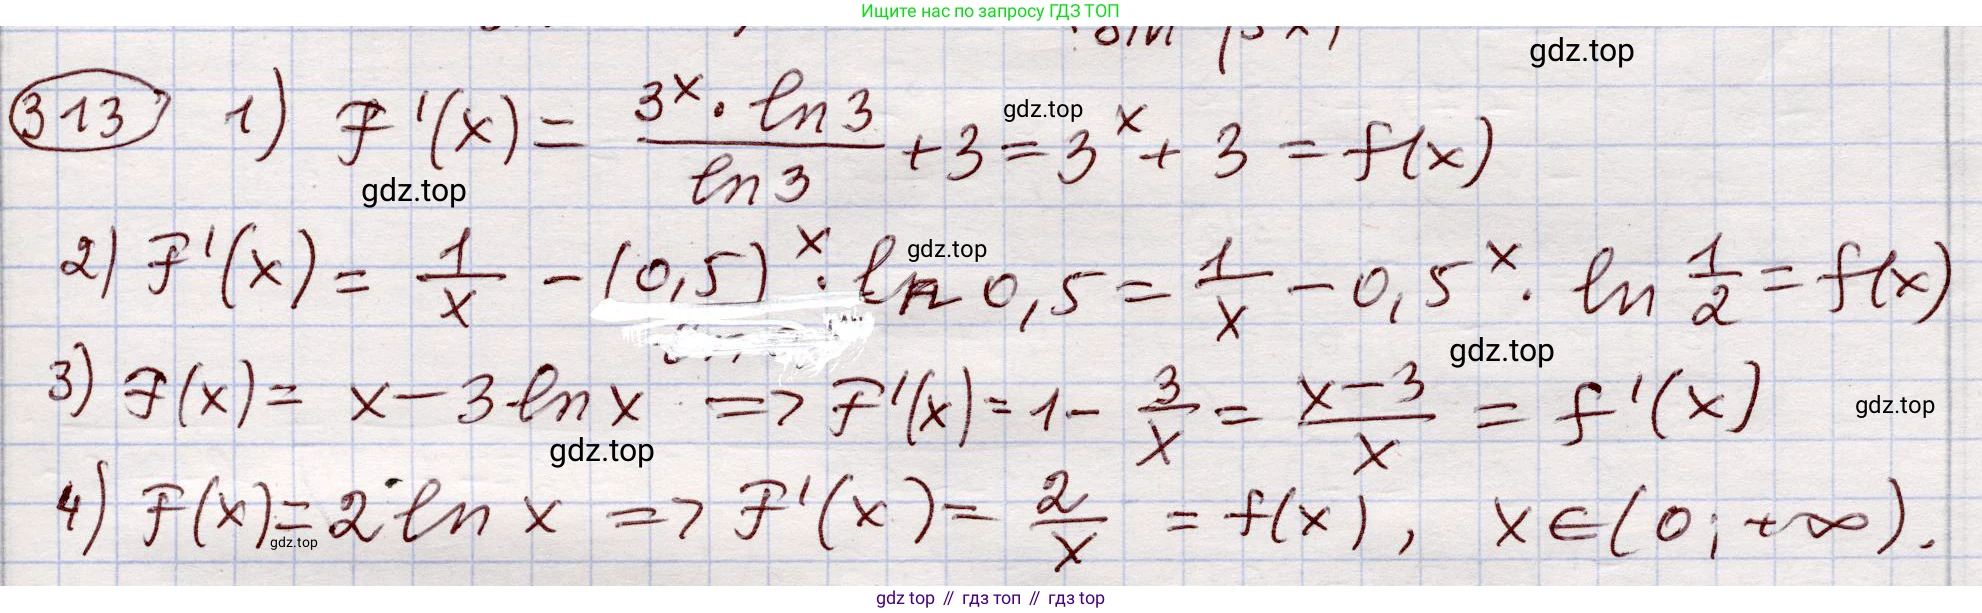 Ищите нас по запросу ГДЗ ТОП
gdz.top
313 1) F'(x) = (3^x · ln 3)/(ln 3) + 3 = 3^x + 3 = f(x)
gdz.top
gdz.top
2) F'(x) = 1/x − (0,5)^x · ln 0,5 = 1/x − 0,5^x · ln 1/2 = f(x)
gdz.top
gdz.top
3) F(x) = x − 3 ln x => F'(x) = 1 − 3/x = (x − 3)/x = f'(x)
gdz.top
gdz.top
4) F(x) = 2 · ln x => F'(x) = 2/x = f(x), x ∈ (0; +∞).
gdz.top
gdz top // гдз топ // gdz top